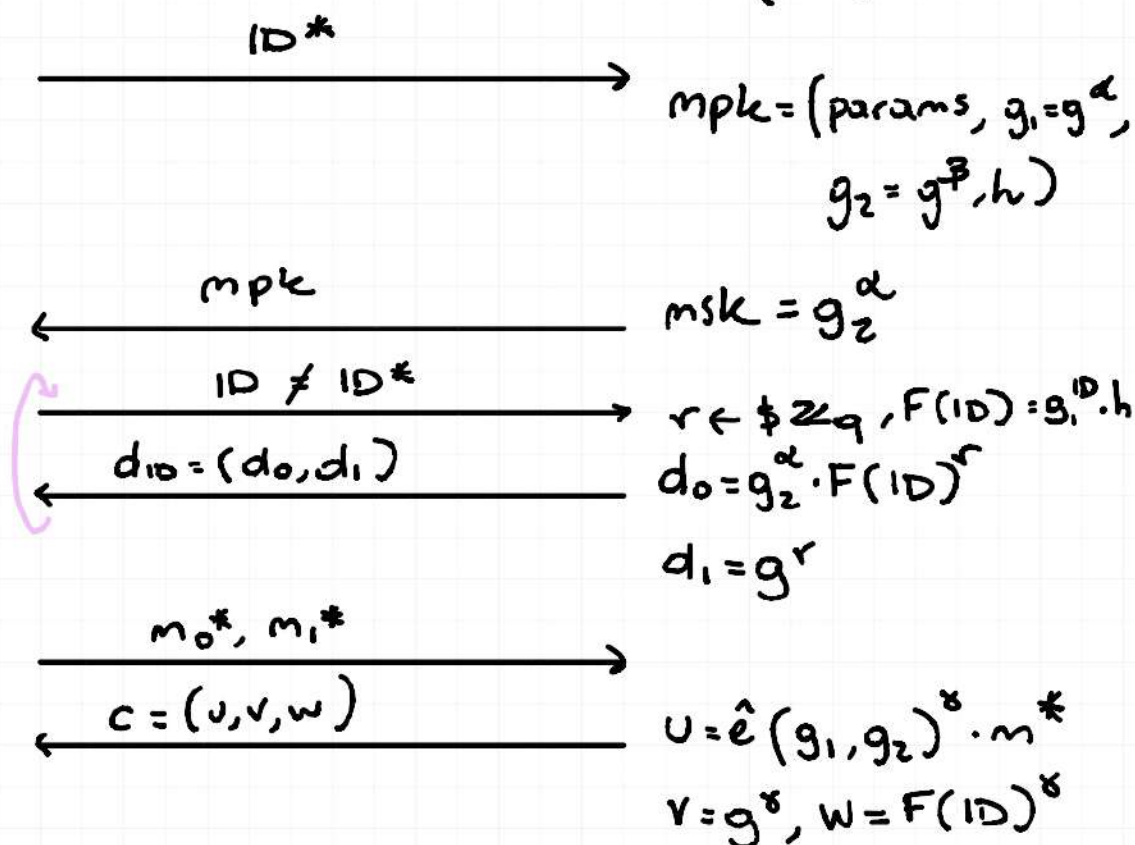 ID*
mpk = (params, g₁ = g^α,
g₂ = g^β, h)
mpk
msk = g₂^α
ID ≠ ID*
r ← $ ℤq, F(ID) = g₁^ID · h
d_ID = (d₀, d₁)
d₀ = g₂^α · F(ID)^r
d₁ = g^r
m₀*, m₁*
c = (u, v, w)
u = ê(g₁, g₂)^γ · m*
v = g^γ, w = F(ID)^γ